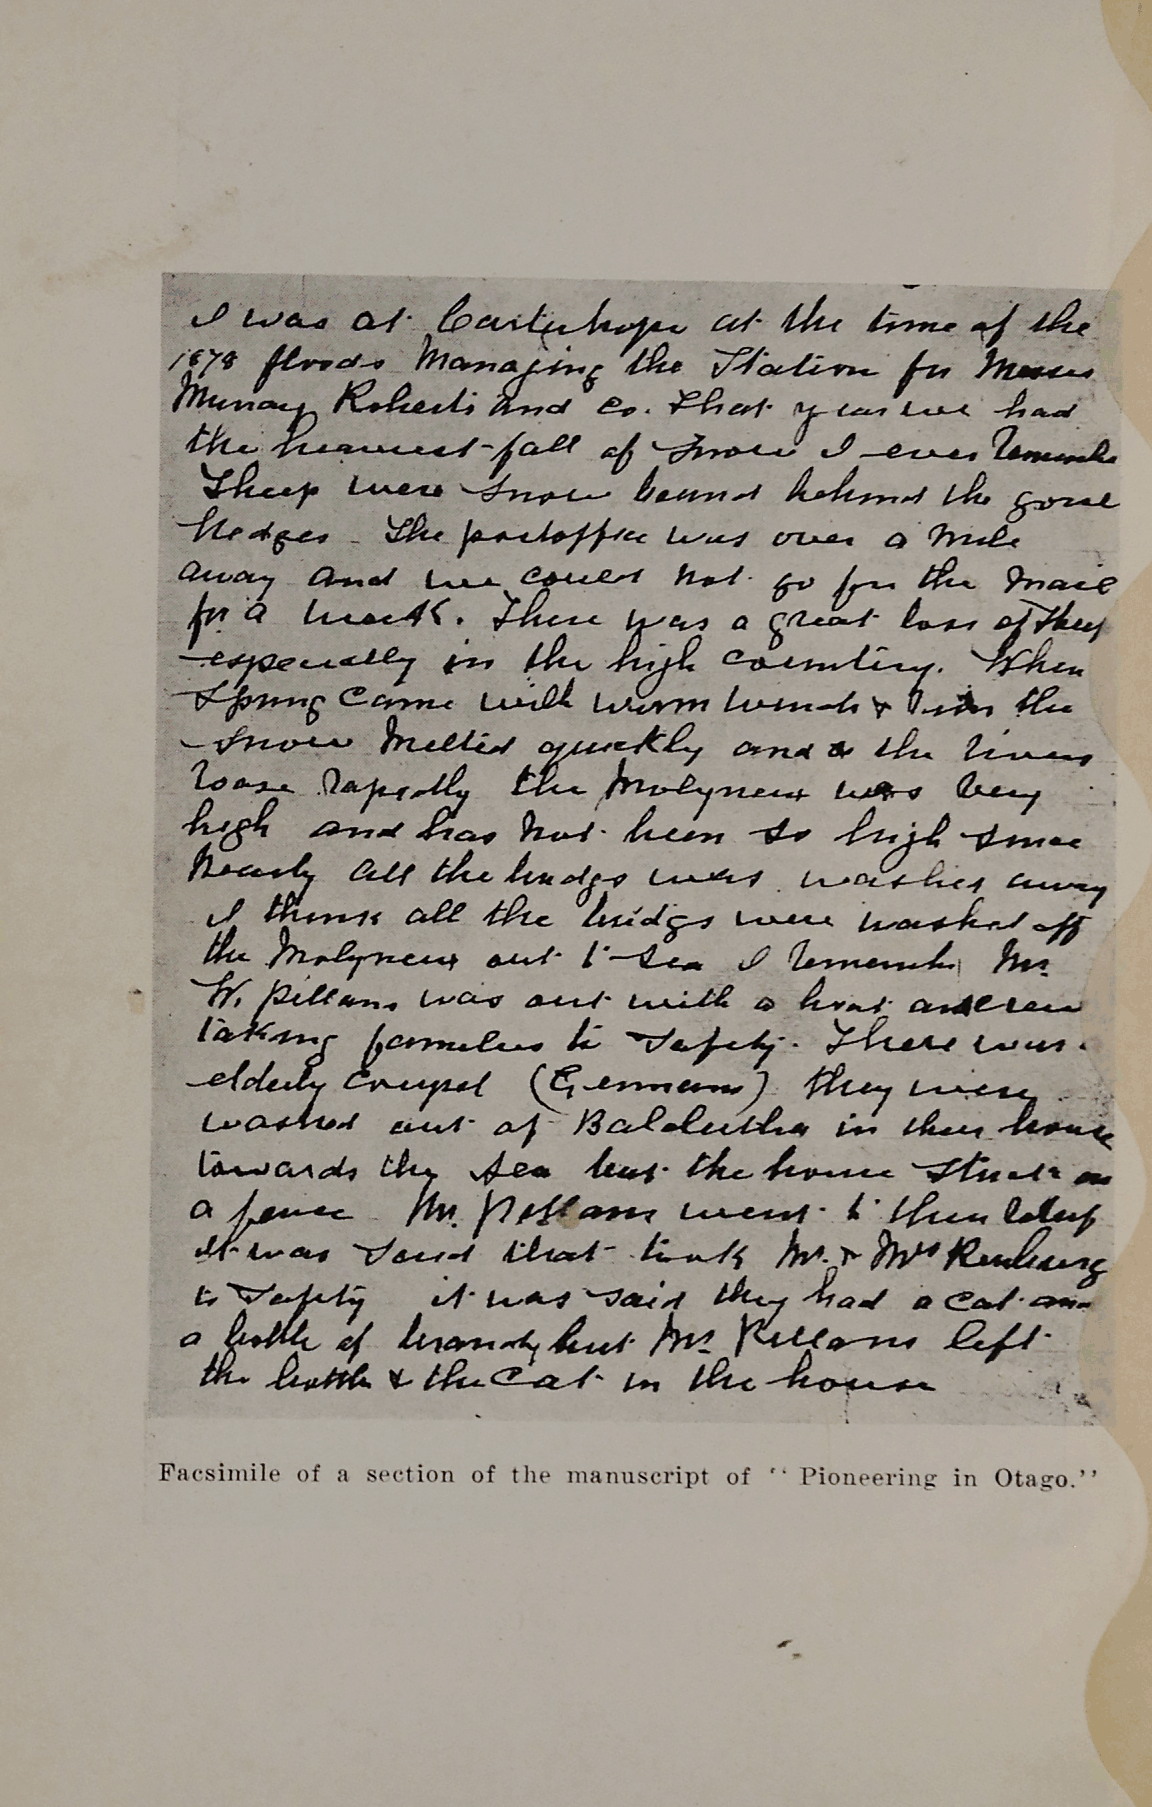 I was at Carterhope at the time of the
1878 floods Managing the Station for Messrs
Murray Roberts and Co. That year we had
the heaviest fall of Snow I ever
Sheep were snow bound behind the gorse
hedges The postoffice was over a Mile
away and we could not go for the Mail
for a week. There was a great loss of Sheep
especially in the high country. When
Spring came with warm winds & rain the
Snow Melted quickly and the rivers
rose rapidly the Molyneux was very
high and has not been so high since
Nearly all the bridgs was washed away
I think all the bridgs were washed off
the Molyneux out to Sea I Mr.
W. Pillans was out with a boat
taking families to Safety. There was
elderly (Germans) they were
washed out of Balclutha in their house
towards the Sea but the house Stuck on
a fence Mr. Pillans went to their
It was Said that took Mr. & Mrs
to Safety it was said they had a cat and
a bottle of brandy but Mr. Pillans left
the bottle & the cat in the house
Facsimile of a section of the manuscript of "Pioneering in Otago."